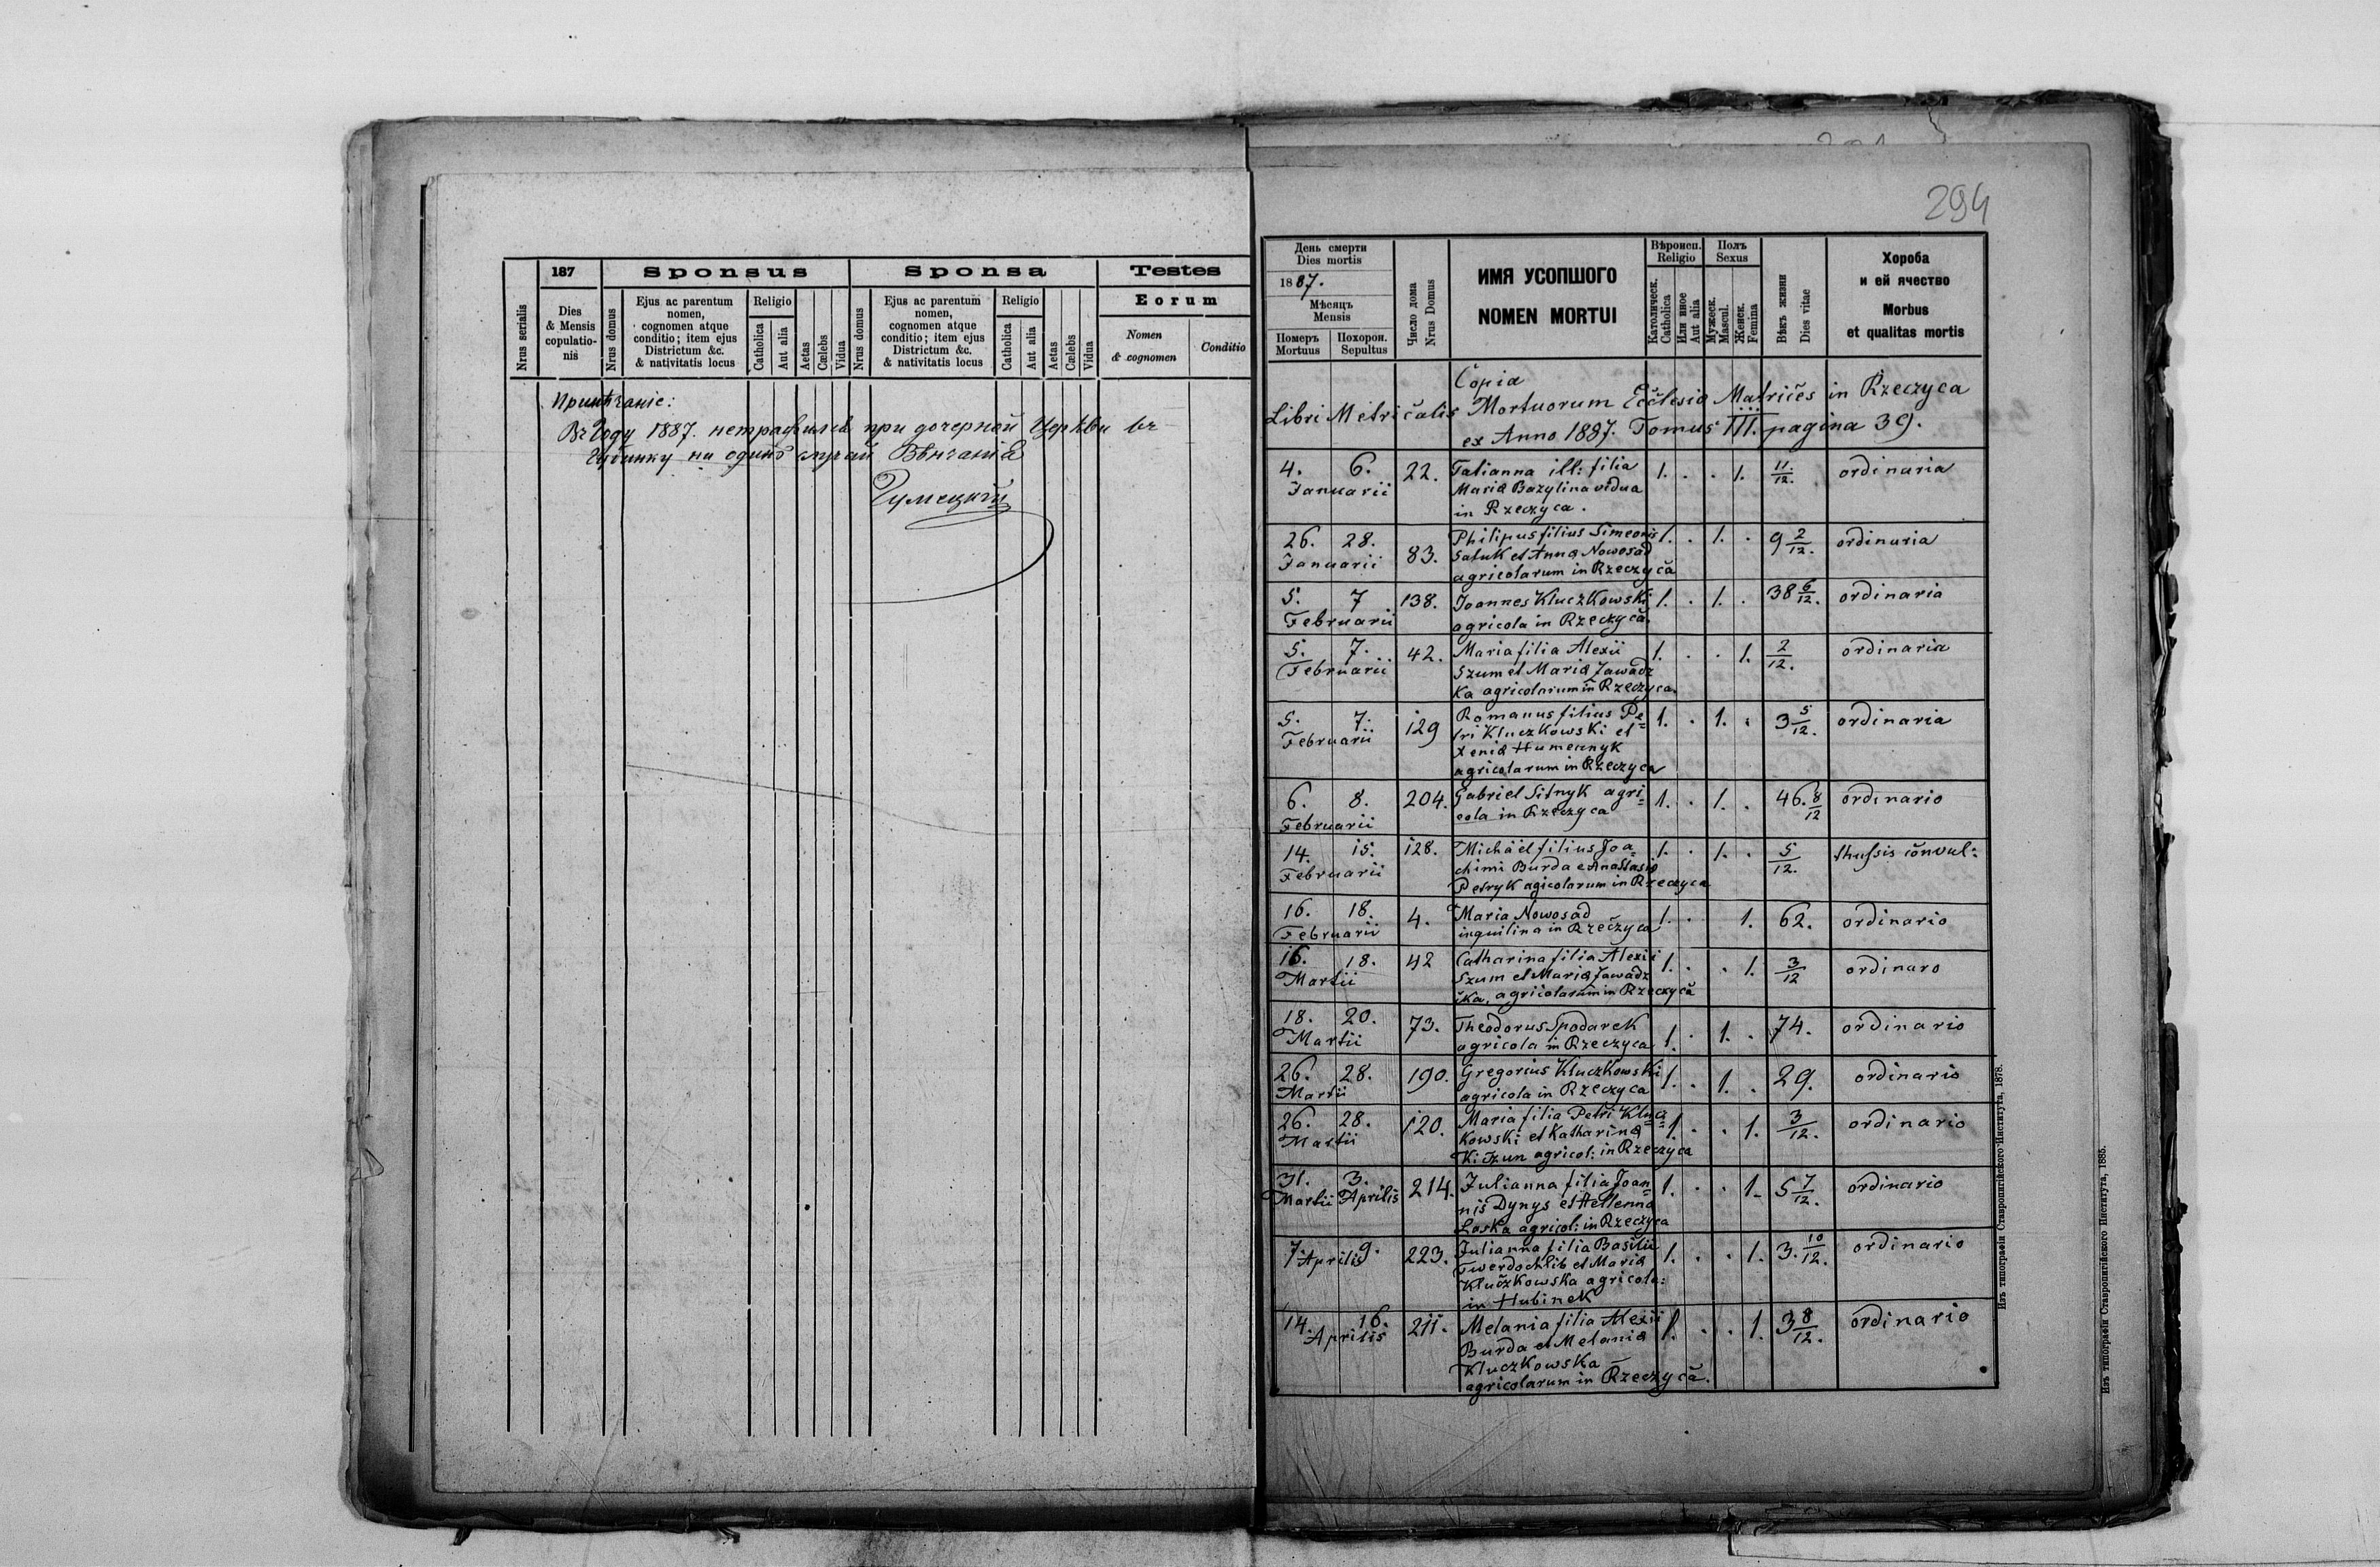 187
Sponsus
Sponsa
Testes
Nrus serialis
Dies
& Mensis
copulatio-
nis
Nrus domus
Ejus ac parentum
nomen,
cognomen atque
conditio; item ejus
Districtum &c.
& nativitatis locus
Religio
Catholica
Aut alia
Aetas
Cœlebs
Vidua
Nrus domus
Ejus ac parentum
nomen,
cognomen atque
conditio; item ejus
Districtum &c.
& nativitatis locus
Religio
Catholica
Aut alia
Aetas
Cœlebs
Vidua
Eorum
Nomen
& cognomen
Conditio
Примѣчаніе:
Въ году 1887. нетрафился при дочерной Церкви въ
на одинъ случай Вѣнчанія
294
День смерти
Dies mortis
1887.
Мѣсяцъ
Mensis
Померъ
Mortuus
Похорон.
Sepultus
Число дома
Nrus Domus
ИМЯ УСОПШОГО
NOMEN MORTUI
Вѣроисп.
Religio
Католическ.
Catholica
Или иное
Aut alia
Полъ
Sexus
Мужеск.
Mascul.
Женск.
Femina
Вѣкъ жизни
Dies vitae
Хороба
и ей ячество
Morbus
et qualitas mortis
Copia
Libri Metricalis Mortuorum Ecclesia Matrices in Rzeczyca
ex Anno 1887. Tomus III. pagina 39.
4. 6. 22. Tatianna ill: filia 1. . . 1. 11/12. ordinaria
Januarii Maria Bazylina vidua
in Rzeczyca.
26. 28. 83. Philipus filius Simeonis 1. . 1. . 9 2/12. ordinaria
Januarii Saluk et Anna Nowosad
agricolarum in Rzeczyca
5. 7 138. Joannes Kluczkowski 1. . 1. . 38 6/12. ordinaria
Februarii agricola in Rzeczyca.
5. 7. 42. Maria filia Alexii 1. . . 1. 2/12. ordinaria
Februarii Szum et Maria Zawadz
ka agricolarum in Rzeczyca.
5. 7. 129 Romanus filius Pe= 1. . 1. . 3 5/12. ordinaria
Februarii tri Kluczkowski et
Xenia Humennyk
agricolarum in Rzeczyca
6. 8. 204. Gabriel Sitnyk agri= 1. . 1. . 46. 8/12 ordinario
Februarii cola in Rzeczyca
14. 15. 128. Michaël filius Joa= 1. . 1. . 5/12. thussis convul:
Februarii chimi Burda et Anastasia
Petryk agicolarum in Rzeczyca
16. 18. 4. Maria Nowosad 1. . 1. 62. ordinario
Februarii inquilina in Rzeczyca
16. 18. 42 Catharina filia Alexii 1. . . 1. 3/12 ordinaro
Martii Szum et Maria Zawadz
cka, agricolarum in Rzeczyca
18. 20. 73. Theodorus Spodarek 1. . 1. . 74. ordinario
Martii agricola in Rzeczyca
26. 28. 190. Gregorius Kluczkowski 1. . 1. . 29. ordinario
Martii agricola in Rzeczyca
26. 28. 120. Maria filia Petri Klucz= 1. . . 1. 3/12. ordinario
Martii kowski et Katharina
Kiczun agricol: in Rzeczyca
31. 3. 214. Julianna filia Joan= 1. . . 1. 5 7/12. ordinario
Martii Aprilis nis Dynys et Hellenna
Laska agricol: in Rzeczyca
7. 9. 223. Julianna filia Basilii 1. . . 1. 3. 10/12. ordinario
Aprilis Twerdochlib et Maria
Kluczkowska agricola:
in Hubinek
14. 16. 211. Melania filia Alexii 1. . . 1. 3 8/12. ordinario
Aprilis Burda et Melania
Kluczkowska
agricolarum in Rzeczyca.
Изъ типографіи Ставропигійского Института, 1878.
Изъ типографіи Ставропигійского Института, 1885.